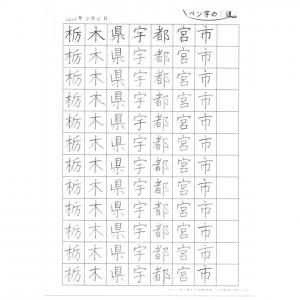 ペン字の道
栃木県宇都宮市
栃木県宇都宮市
栃木県宇都宮市
栃木県宇都宮市
栃木県宇都宮市
栃木県宇都宮市
栃木県宇都宮市
栃木県宇都宮市
栃木県宇都宮市
栃木県宇都宮市
栃木県宇都宮市
栃木県宇都宮市